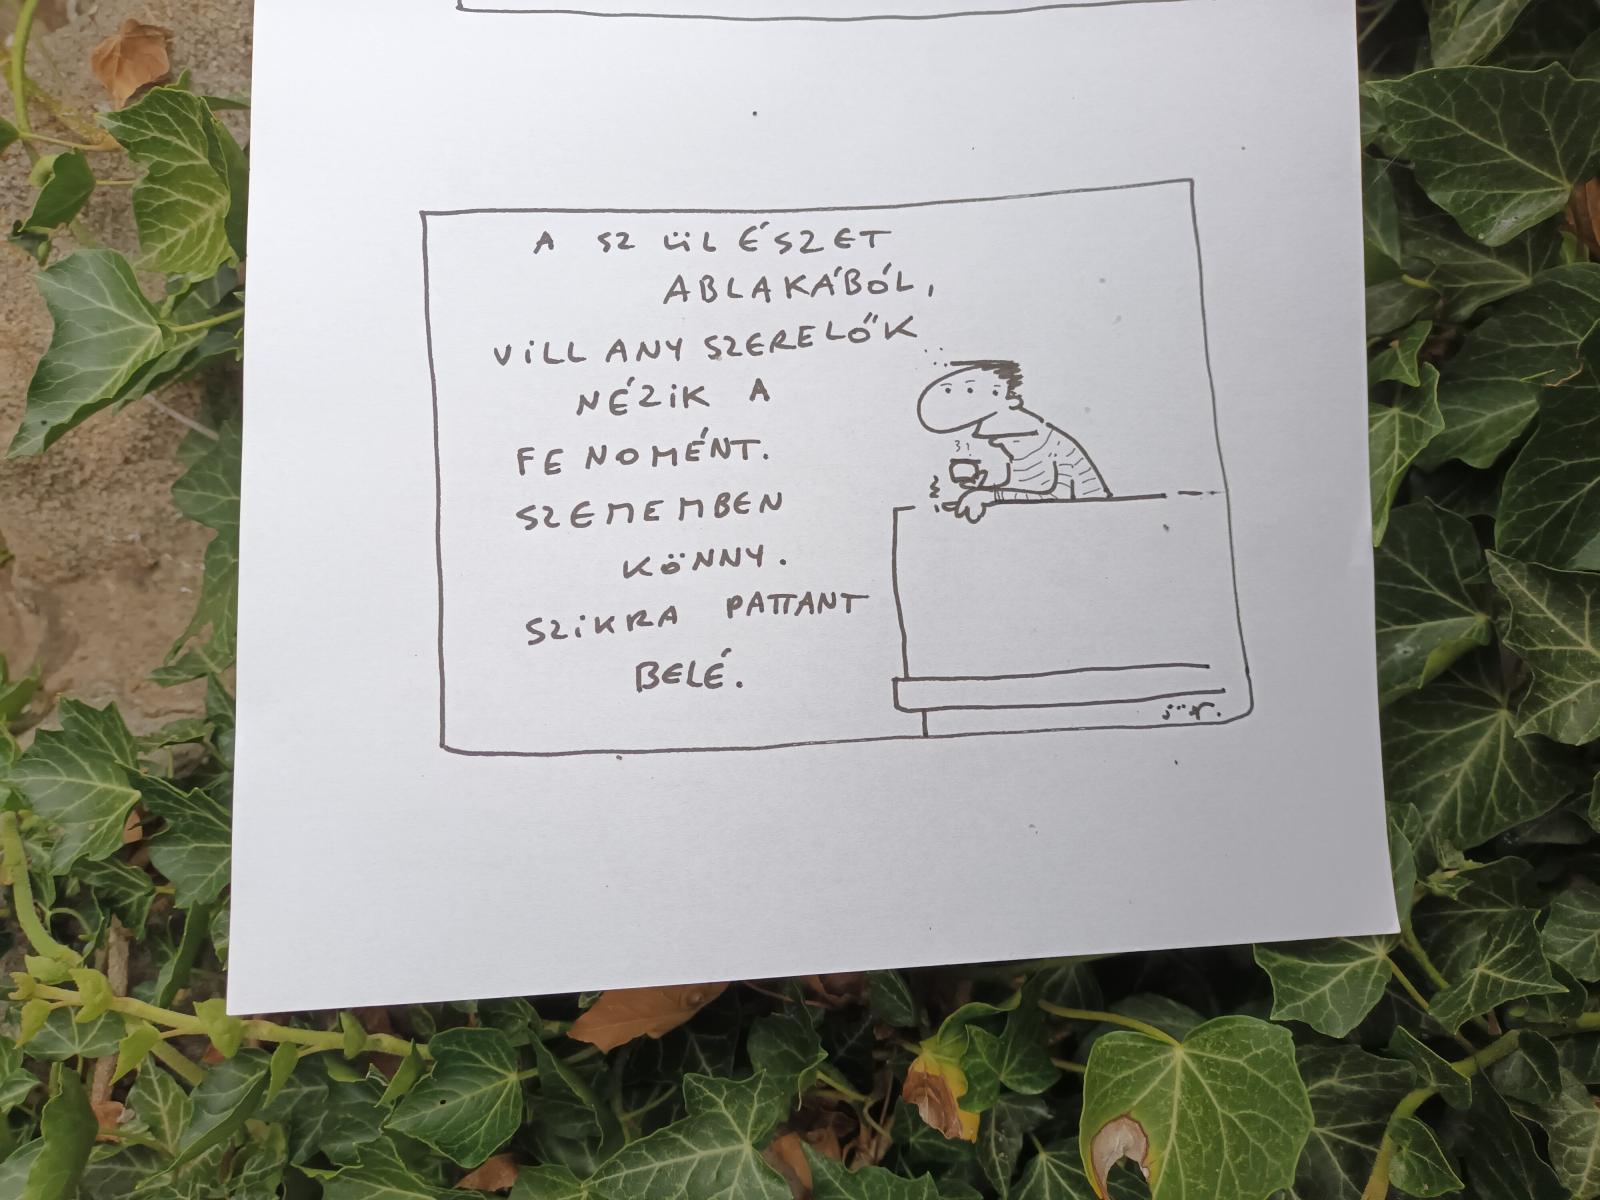 A SZÜLÉSZET
ABLAKÁBÓL,
VILLANYSZERELŐK
NÉZIK A
FENOMÉNT.
SZEMEMBEN
KÖNNY.
SZIKRA PATTANT
BELÉ.